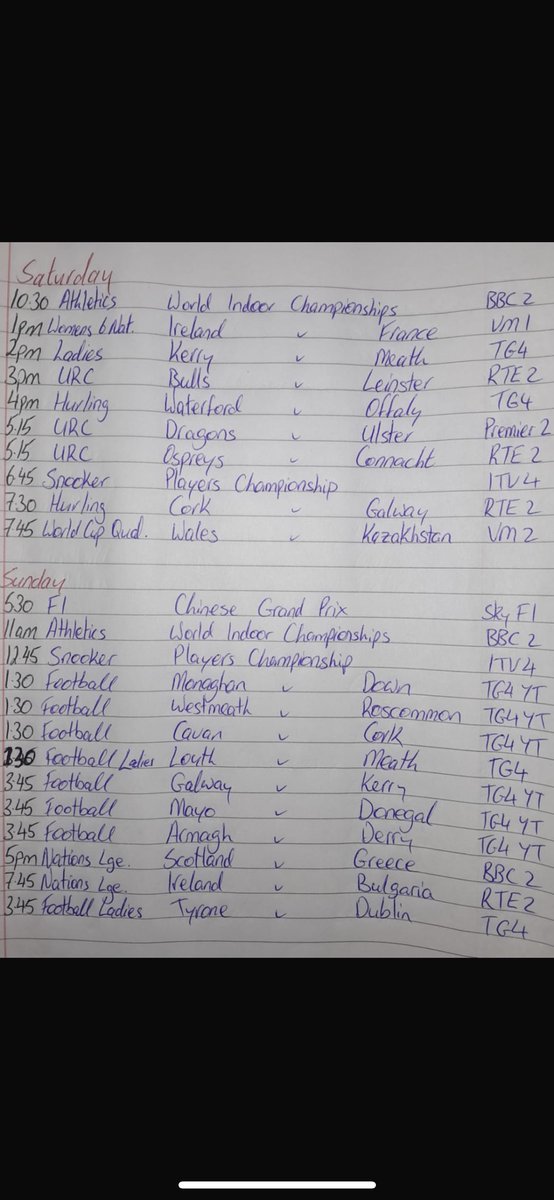 Saturday
10.30 Athletics World Indoor Championships BBC 2
1pm Womens 6 Nat. Ireland v France VM1
2pm Ladies Kerry v Meath TG4
3pm URC Bulls v Leinster RTE 2
4pm Hurling Waterford v Offaly TG4
5.15 URC Dragons v Ulster Premier 2
5.15 URC Ospreys v Connacht RTE 2
6.45 Snooker Players Championship ITV4
7.30 Hurling Cork v Galway RTE 2
7.45 World Cup Qual. Wales v Kazakhstan VM 2
Sunday
5.30 F1 Chinese Grand Prix Sky F1
11am Athletics World Indoor Championships BBC 2
12.45 Snooker Players Championship ITV4
1.30 Football Monaghan v Down TG4 YT
1.30 Football Westmeath v Roscommon TG4 YT
1.30 Football Cavan v Cork TG4 YT
1.30 Football Ladies Louth v Meath TG4
3.45 Football Galway v Kerry TG4 YT
3.45 Football Mayo v Donegal TG4 YT
3.45 Football Armagh v Derry TG4 YT
5pm Nations Lge. Scotland v Greece BBC 2
7.45 Nations Lge. Ireland v Bulgaria RTE2
3.45 Football Ladies Tyrone v Dublin TG4